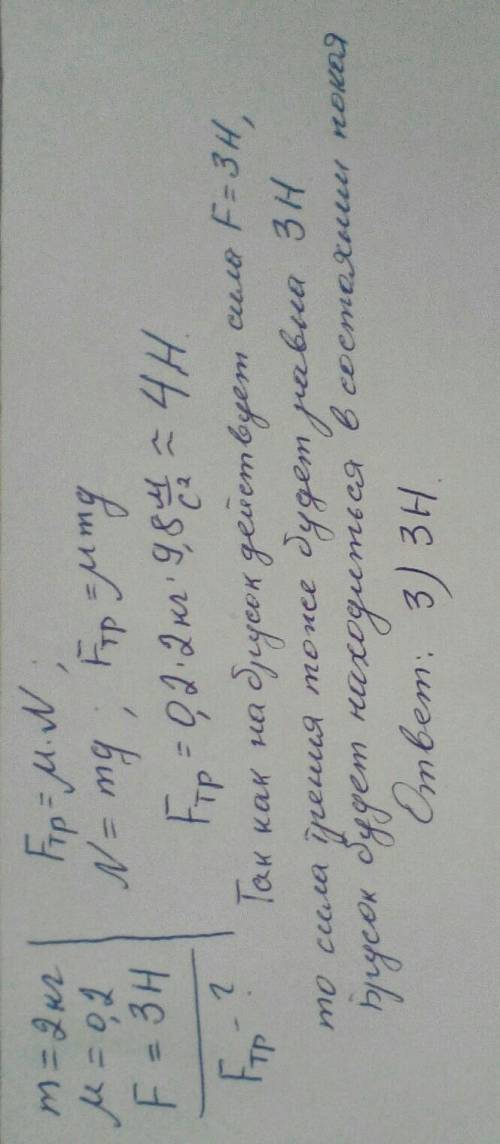 m = 2 кг
μ = 0,2
F = 3 Н
Fтр - ?
Fтр = μ · N ;
N = mg ; Fтр = μ mg
Fтр = 0,2 · 2 кг · 9,8 м/с² ≈ 4 Н.
Так как на брусок действует сила F = 3 Н,
то сила трения тоже будет равна 3 Н
Брусок будет находиться в состоянии покоя
Ответ: 3) 3 Н.